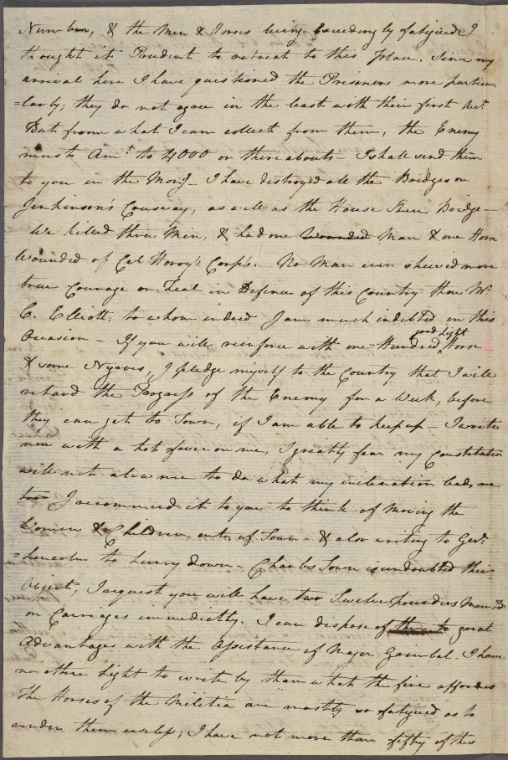 Number, & the Men & Horses being Exceedingly fatigued I
thought it Prudent to retreat to this Place, Since my
arrival here I have questioned the Prisoners more particu
=larly; they do not agree in the least with their first Act.
But from what I can collect from them, the Enemy
must Amt. to 4000 or thereabouts – I shall send them
to you in the Morg – I have destroyed all the Bridges on
Jenkinson's Causway, as well as the House Bridge –
We killed three Men, & had one Wounded Man & one Horse
Wounded of Col Horry's Corps. No Man ever shewed more
true Courage or Zeal in Defence of this Country than Mr.
C. Elliott to whom indeed I am much indebted in this
Occasion – If you will reinforce with one Hundred good light Horse
& some Nigroes, I pledge myself to the Country that I will
retard the Progress of the Enemy for a Week, before
they can get to Town, if I am able to keep up – I write
now with a hot fever on me, I greatly fear my Constitution
will not allow me to do what my inclination leads me
too I recommend it to you to think of Moving the
Women & Children out of Town – & also writing to Genl.
=Lincoln to hurry down – Charles Town is undoubted their
Object, I request you will have two Twelve pounders Mountd
on Carriages immediately. I can dispose of them to great
Advantages with the Assistance of Major Gambal. I have
no other light to write by than what the fire affords
The Horses of the Militia are mostly so fatigued as to
render them useless; I have not more than fifty of this